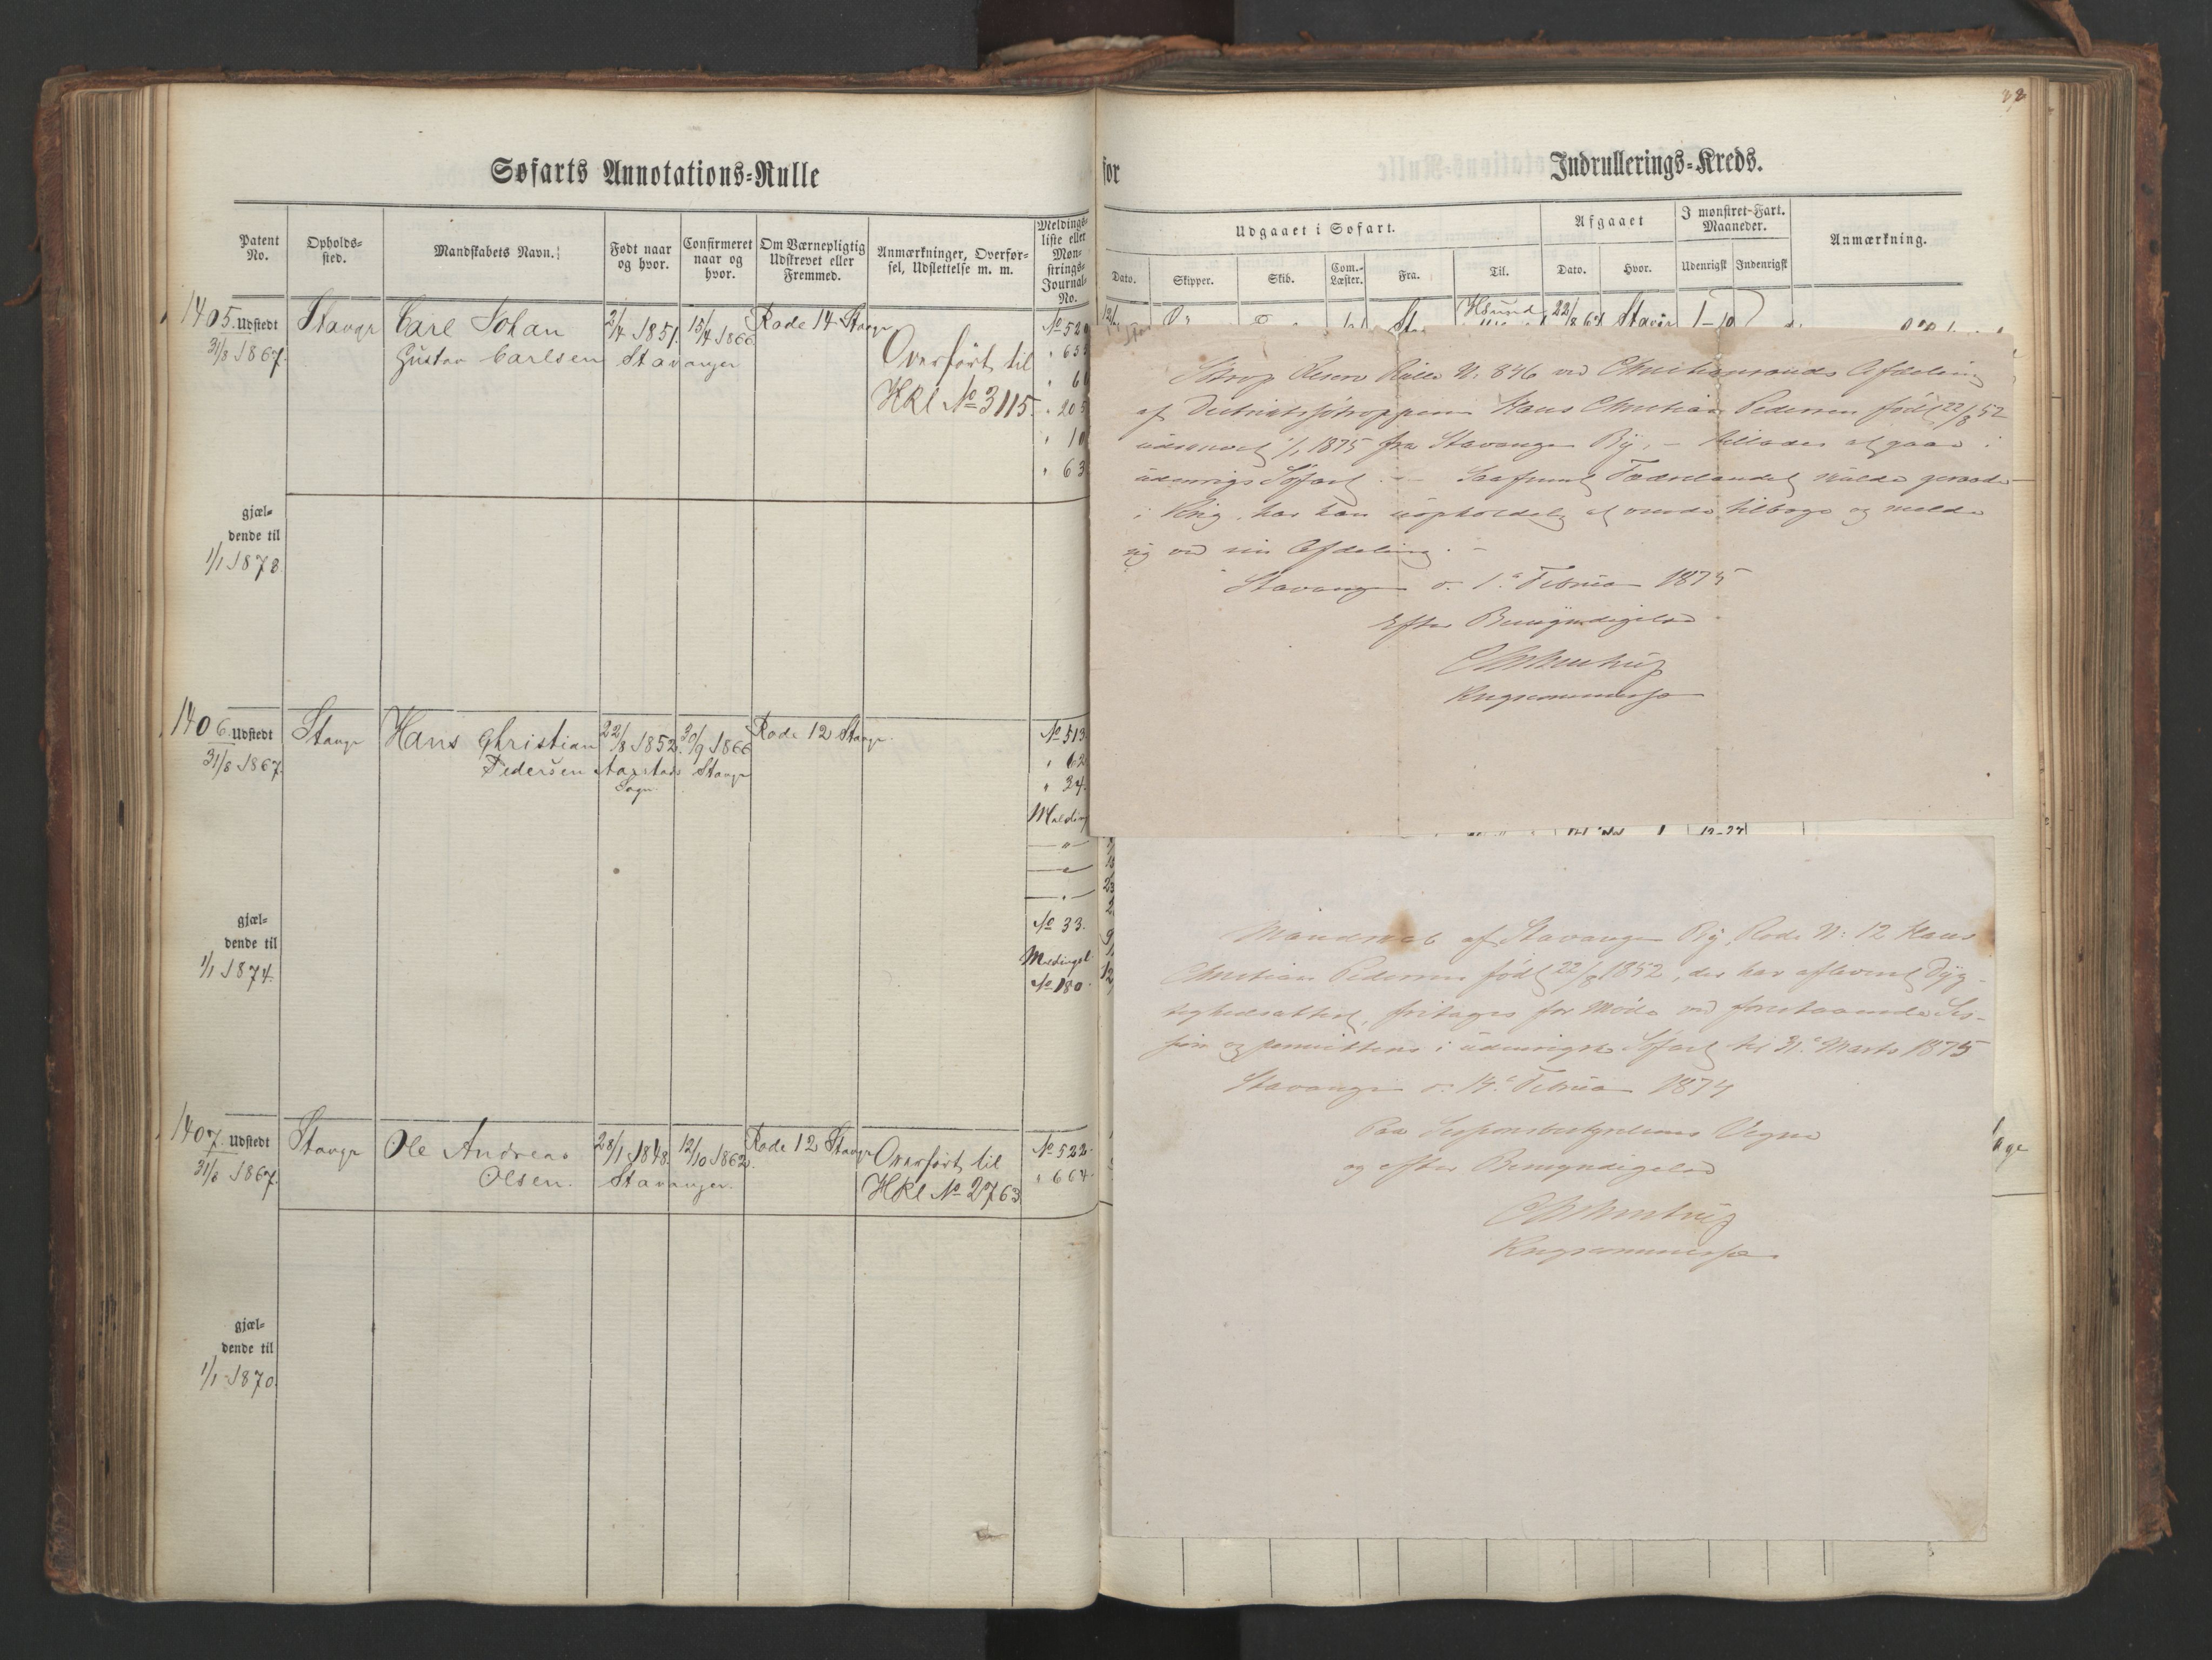 Søfarts Annotations-Rulle
Patent No.
Opholds-sted.
Mandskabets Navn.
Født naar og hvor.
Confirmeret naar og hvor.
Om Værnepligtig Udskrevet eller Fremmed.
Anmærkninger, Overførsel, Udslettelse m. m.
Meldings-liste eller Mønstrings-Journal-No.
1405. Udstedt
31/8 1867.
Stavgr
Carl Johan
Gustav Carlsen
2/4 1851.
Stavanger
15/4 1866
Rode 14 Stavgr
Overført til
HKl No 3115.
No 520
gjæl-
dende til
1/1 1878.
1406. Udstedt
31/8 1867.
Stavgr
Hans Christian
Pedersen
22/8 1852.
Sogn
30/9 1866
Stavgr
Rode 12 Stavgr.
No 513
" 62
" 34.
Melding
No 33.
Meldingsl.
No 180.
gjæl-
dende til
1/1 1874.
1407. Udstedt
31/8 1867.
Stavgr
Ole Andreas
Olsen.
28/1 1848.
Stavanger.
12/10 1862.
Rode 12 Stavgr
Overført til
HKl No 2763
No 522.
" 664.
gjæl-
dende til
1/1 1870.
for
Indrullerings-Kreds.
Udgaaet i Søfart.
Afgaaet
I mønstret-Fart. Maaneder.
Anmærkning.
Dato.
Skipper.
Skib.
Com.-Læster.
Fra.
Til.
Dato.
Hvor.
Udenrigsk
Indenrigsk
22/8 67
Rulle N: 846 ved Christiansands Afdeling
af Hans Christian Pedersen født 22/8 52
1/1 1875 fra Stavanger By, – tillades at gaae i
udenrigs Søfart. – Saafremt Fædrelandet skulde geraade
i Krig, har han uopholdelig at vende tilbage og melde
sig ved sin Afdeling. –
Stavanger d. 1. Februar 1875
Efter Bemyndigelse
Krigscommissær
Mandskab af Stavanger By, Rode N: 12 Hans
Christian Pedersen født 22/8 1852, der har afleveret Dyg-
tighedsattest, fritages for Møde ved forestaaende Ses-
sion og permitteres i udenrigsk Søfart til 31. Marts 1875
Stavanger d. 14. Februar 1874
Paa Sessionsbestyrelsens Vegne
og efter Bemyndigelse
Krigscommissær